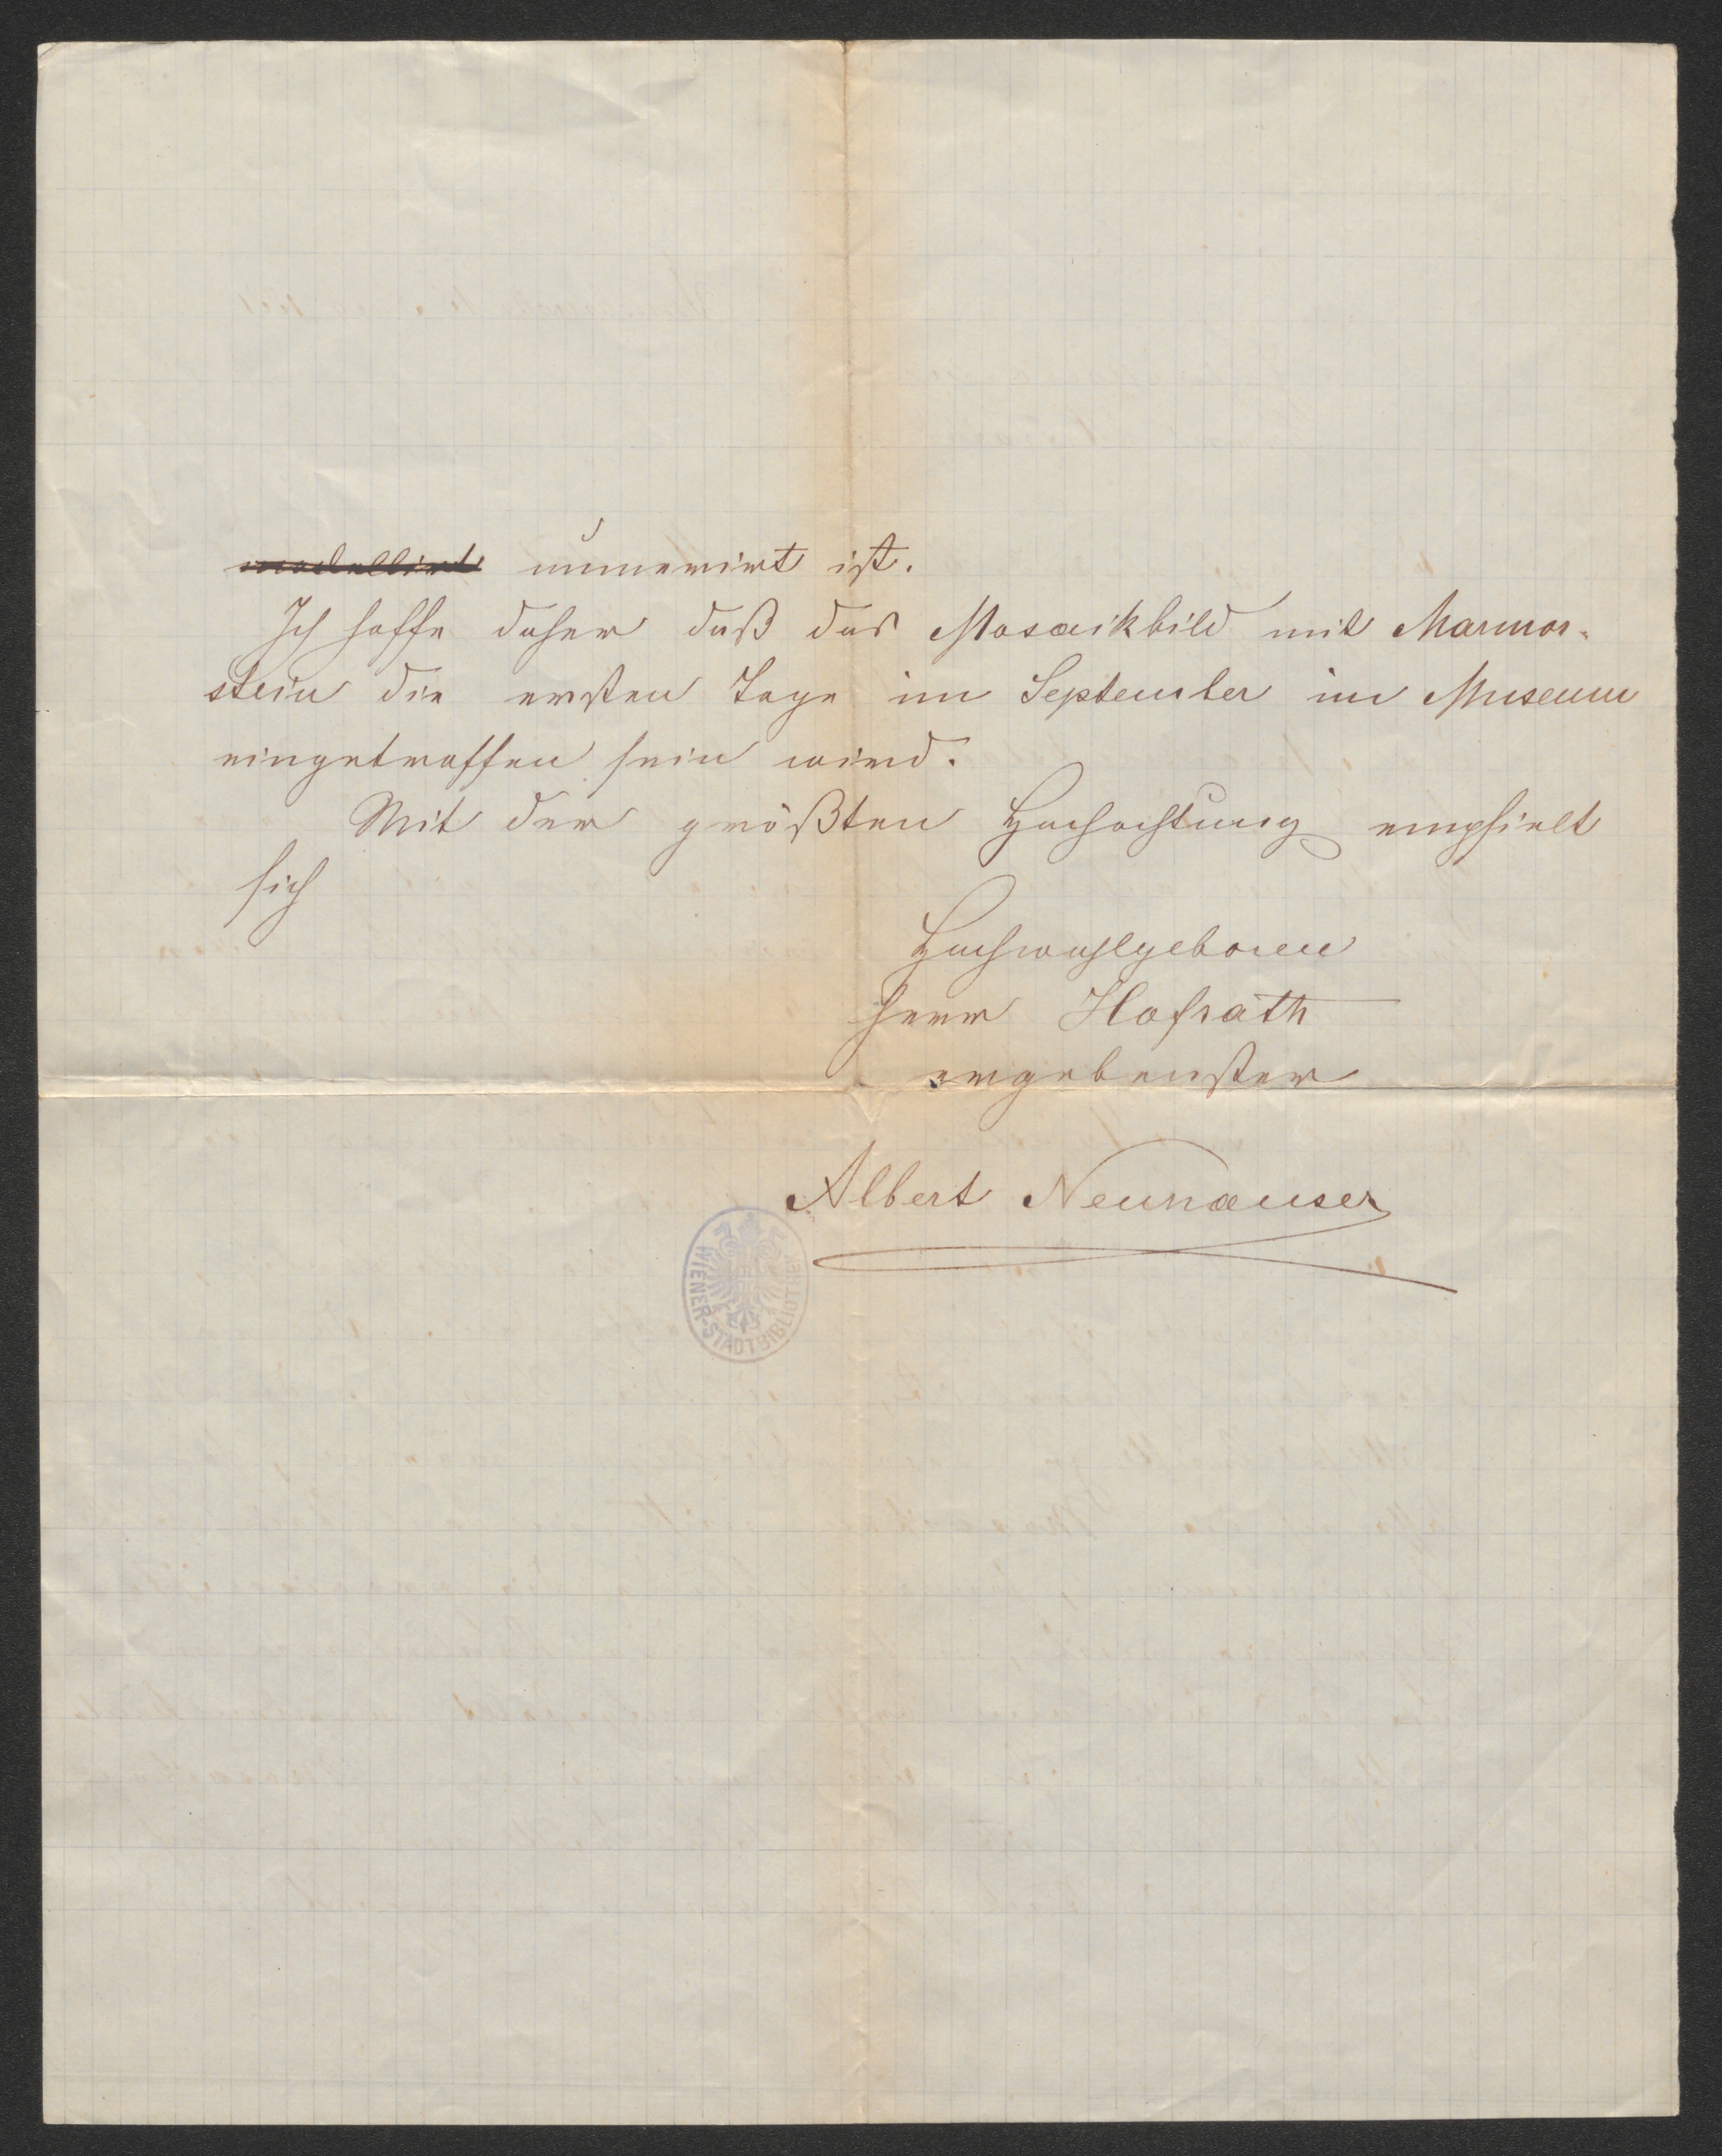 modellirt numerirt ist.
Ich hoffe daher daß das Mosaikbild mit Marmor-
stein die ersten Tage im September im Museum
eingetroffen sein wird.
Mit der größten Hochachtung empfielt
sich
Hochwohlgeboren
Herrn Hofrath
ergebenster
Albert Neuhauser
WIENER-STADTBIBLIOTHEK